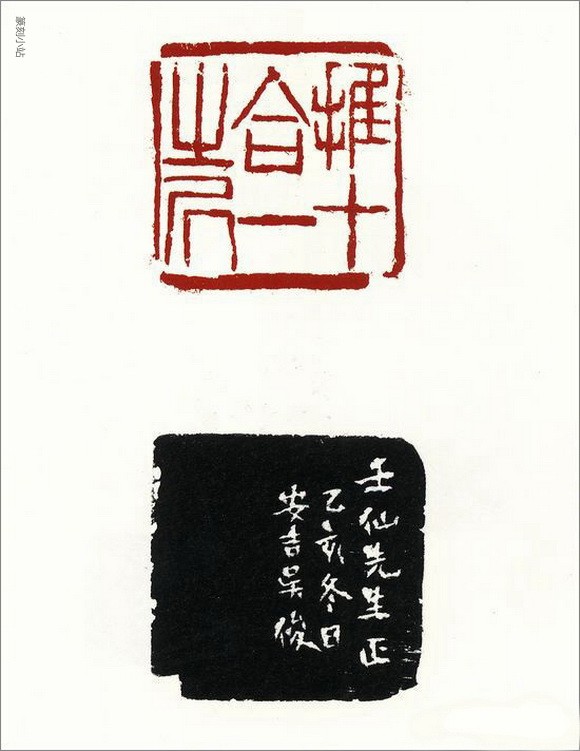 篆刻小站
推十
合一
之凥
壬仙先生正
乙亥冬日
安吉吳俊